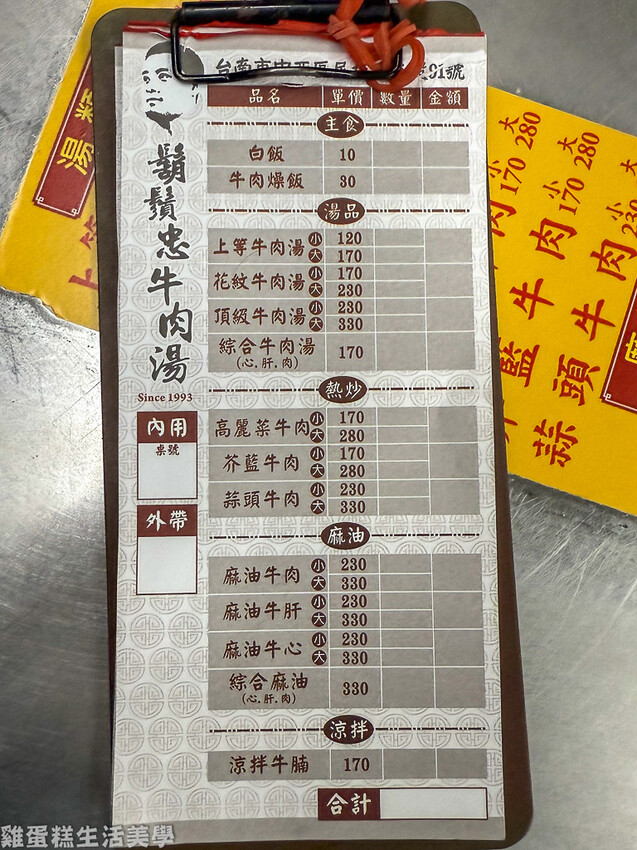 台南市中西區民
91號
品名 單價 數量 金額
主食
白飯 10
牛肉燥飯 30
湯品
上等牛肉湯 小 120
大 170
花紋牛肉湯 小 170
大 230
頂級牛肉湯 小 230
大 330
綜合牛肉湯 170
(心.肝.肉)
熱炒
高麗菜牛肉 小 170
大 280
芥藍牛肉 小 170
大 280
蒜頭牛肉 小 230
大 330
麻油
麻油牛肉 小 230
大 330
麻油牛肝 小 230
大 330
麻油牛心 小 230
大 330
綜合麻油 330
(心.肝.肉)
涼拌
涼拌牛腩 170
合計
鬍鬚忠牛肉湯
Since 1993
內用
桌號
外帶
湯類
上等
大 280
小 170
肉
大 280
小 170
藍牛肉
小 230
蒜頭牛肉
雞蛋糕生活美學